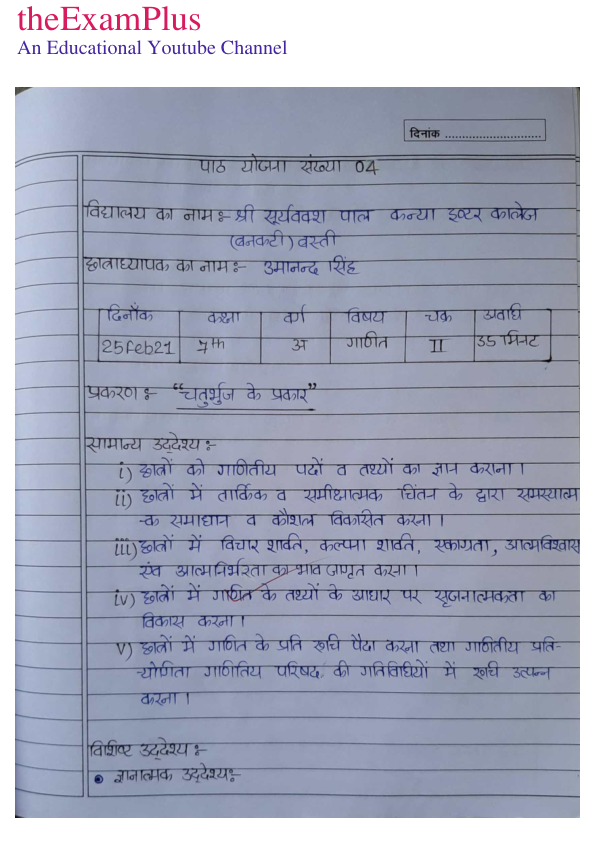 theExamPlus
An Educational Youtube Channel
दिनांक ............................
पाठ योजना संख्या 04
विद्यालय का नाम :- श्री सूर्यववश पाल कन्या इण्टर कालेज
(बनकटी) बस्ती
छात्राध्यापक का नाम :- उमानन्द सिंह
दिनाँक कक्षा वर्ग विषय चक्र अवधि
25Feb21 7th अ गणित II 35 मिनट
प्रकरण :- "चतुर्भुज के प्रकार"
सामान्य उद्‌देश्य :-
i) छात्रों को गाणितीय पदों व तथ्यों का ज्ञान कराना।
ii) छात्रों में तार्किक व समीक्षात्मक चिंतन के द्वारा समस्यात्म
-क समाधान व कौशल विकसित करना।
iii) छात्रों में विचार शक्ति, कल्पना शक्ति, एकाग्रता, आत्मविश्वास
एंव आत्मनिर्भरता का भाव जागृत करना।
iv) छात्रों में गणित के तथ्यों के आधार पर सृजनात्मकता का
विकास करना।
v) छात्रों में गणित के प्रति रूचि पैदा करना तथा गाणितीय प्रति-
-योगिता गाणितिय परिषद की गतिविधियों में रूचि उत्पन्न
करना।
विशिष्ट उद्‌देश्य :-
• ज्ञानात्मक उद्‌देश्य :-